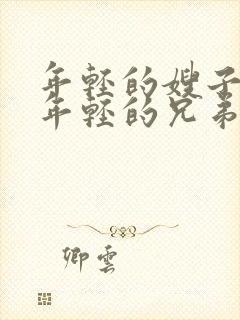 年轻的嫂子
年轻的兄弟
卿雲